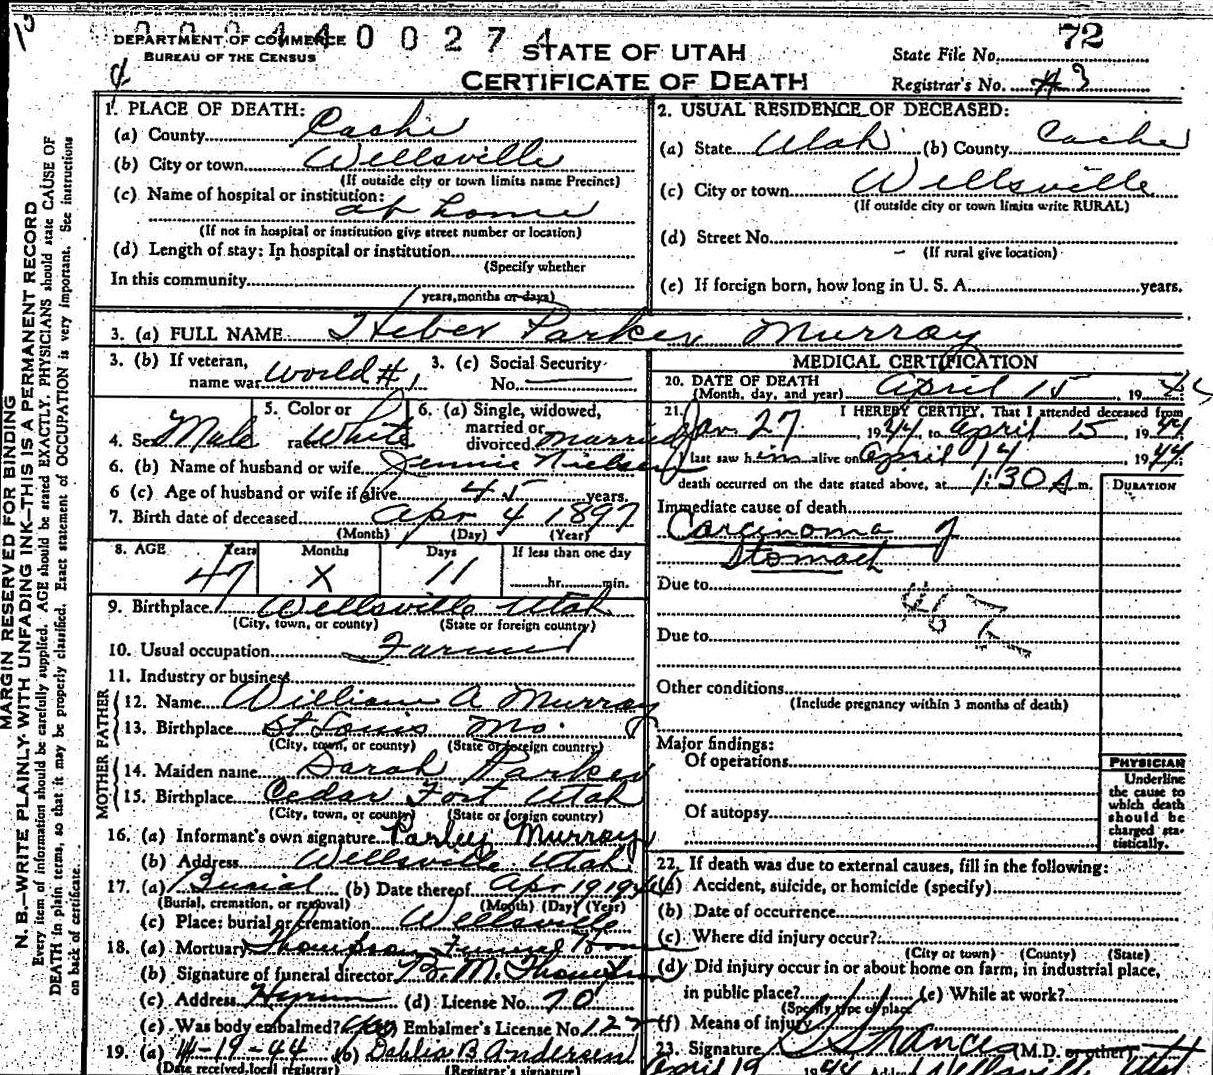 00014400274
DEPARTMENT OF COMMERCE
BUREAU OF THE CENSUS
STATE OF UTAH
CERTIFICATE OF DEATH
State File No. 72
Registrar's No. #3
MARGIN RESERVED FOR BINDING
N. B.—WRITE PLAINLY WITH UNFADING INK—THIS IS A PERMANENT RECORD
Every item of information should be carefully supplied. AGE should be stated EXACTLY. PHYSICIANS should state CAUSE OF
DEATH in plain terms, so that it may be properly classified. Exact statement of OCCUPATION is very important. See instructions
on back of certificate.
1. PLACE OF DEATH:
(a) County Cache
(b) City or town Wellsville
(If outside city or town limits name Precinct)
(c) Name of hospital or institution:
at home
(If not in hospital or institution give street number or location)
(d) Length of stay: In hospital or institution
(Specify whether
In this community
years, months or days)
2. USUAL RESIDENCE OF DECEASED:
(a) State Utah (b) County Cache
(c) City or town Wellsville
(If outside city or town limits write RURAL)
(d) Street No.
(If rural give location)
(e) If foreign born, how long in U. S. A. years.
3. (a) FULL NAME Heber Parker Murray
3. (b) If veteran, name war World # 1
3. (c) Social Security No.
4. Sex Male
5. Color or race White
6. (a) Single, widowed, married or divorced married
6. (b) Name of husband or wife Jennie Nielsen
6 (c) Age of husband or wife if alive 45 years.
7. Birth date of deceased Apr 4 1897
(Month) (Day) (Year)
8. AGE Years Months Days If less than one day
47 X 11 hr. min.
9. Birthplace Wellsville Utah
(City, town, or county) (State or foreign country)
10. Usual occupation Farmer
11. Industry or business
FATHER
12. Name William A Murray
13. Birthplace St Louis Mo.
(City, town, or county) (State or foreign country)
MOTHER
14. Maiden name Sarah Parker
15. Birthplace Cedar Fort Utah
(City, town, or county) (State or foreign country)
16. (a) Informant's own signature Parley Murray
(b) Address Wellsville Utah
17. (a) Burial (b) Date thereof Apr 19 1944
(Burial, cremation, or removal) (Month) (Day) (Year)
(c) Place: burial or cremation Wellsville
18. (a) Mortuary Thompson Funeral Home
(b) Signature of funeral director B. M. Thompson
(c) Address Hyrum (d) License No. 70
(e) Was body embalmed? yes Embalmer's License No. 122
19. (a) 4-19-44 (b) Dahlia B Andersen
(Date received local registrar) (Registrar's signature)
MEDICAL CERTIFICATION
20. DATE OF DEATH
(Month, day, and year) April 15, 1944
21. I HEREBY CERTIFY, That I attended deceased from
Jan. 27, 1944, to April 15, 1944
I last saw him alive on April 14 1944
death occurred on the date stated above, at 1:30 A m.
DURATION
Immediate cause of death
Carcinoma of
Stomach
Due to
Due to
Other conditions
(Include pregnancy within 3 months of death)
Major findings:
Of operations
Of autopsy
PHYSICIAN
Underline
the cause to
which death
should be
charged sta-
tistically.
22. If death was due to external causes, fill in the following:
(a) Accident, suicide, or homicide (specify)
(b) Date of occurrence
(c) Where did injury occur?
(City or town) (County) (State)
(d) Did injury occur in or about home on farm, in industrial place,
in public place? (e) While at work?
(Specify type of place)
(f) Means of injury
23. Signature (M.D. or other)
April 19 1944 Address Wellsville Utah